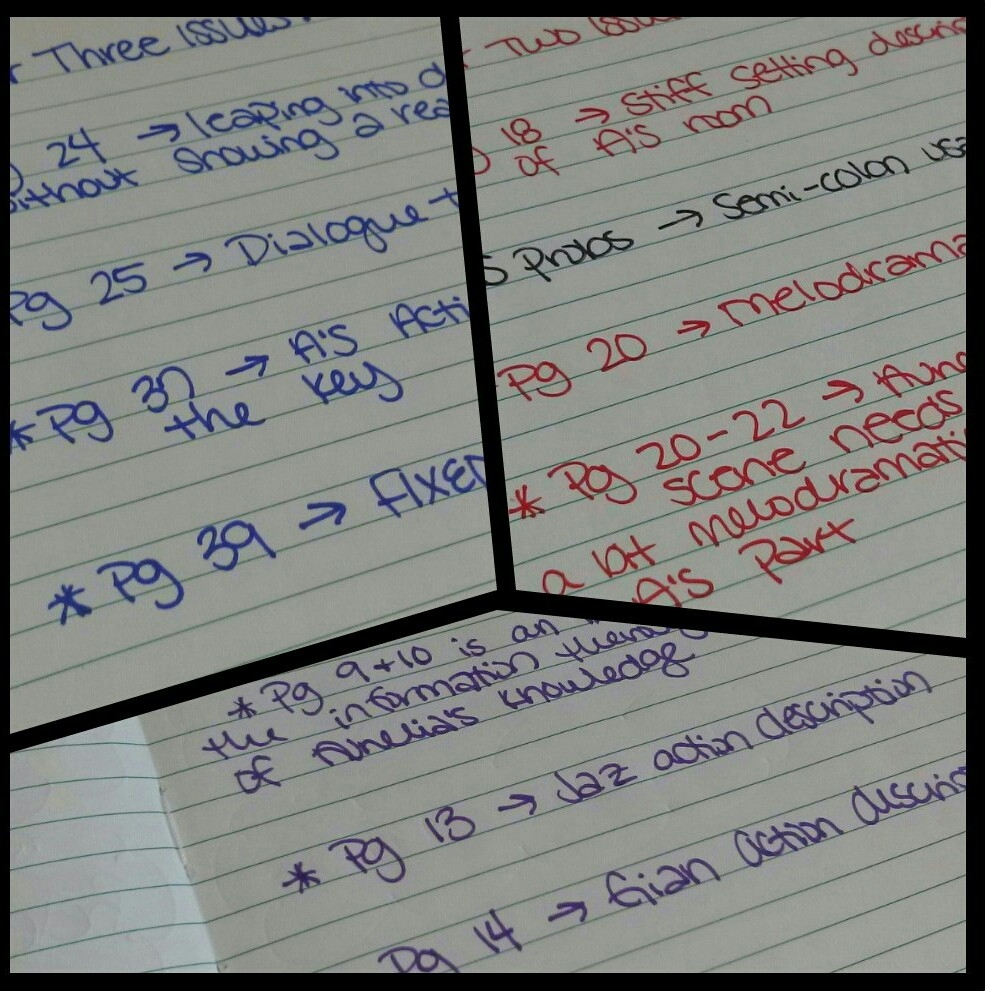 r Three issues
24 → leaping into d
without showing a rea
Pg 25 → Dialogue t
* Pg 37 → A's Acti
the key
* Pg 39 → FIXED
r Two Issu
18 → stiff setting descri
of A's room
s Probs → Semi-colon usa
Pg 20 → melodrama
* Pg 20-22 →
scene needs
a lot melodramati
A's Part
* Pg 9+10 is an
the information
of Aurelia's knowledge
* Pg 13 → Jaz action description
Pg 14 → Gian action descrip